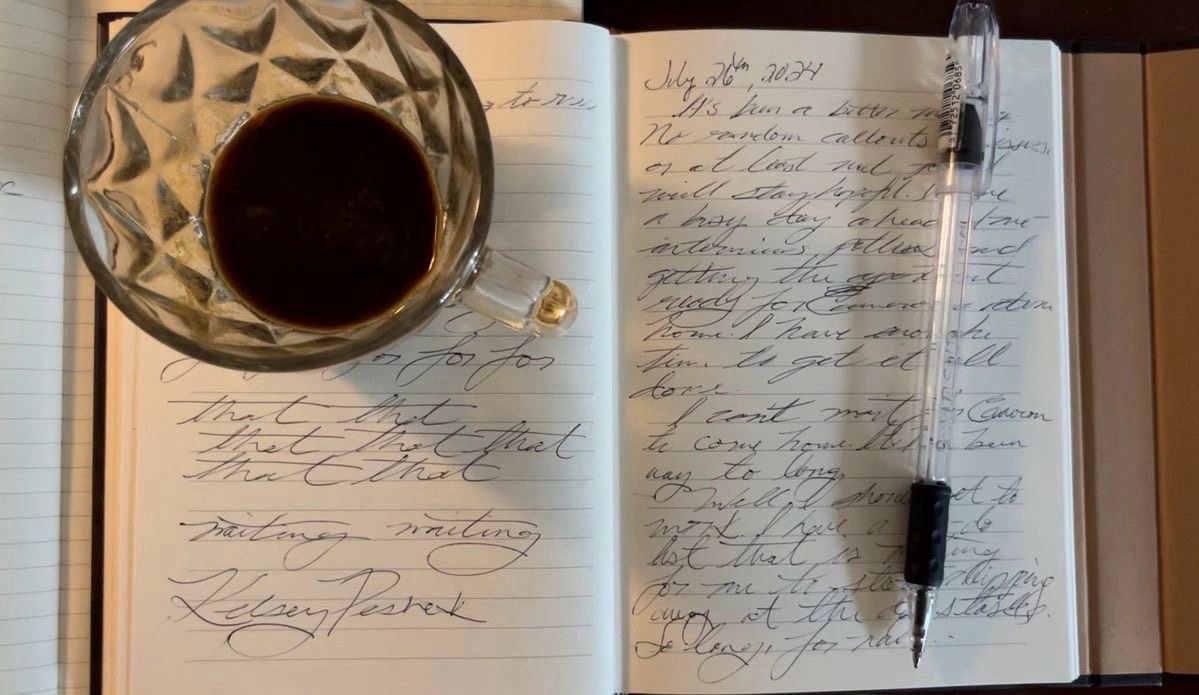 to
for for for
that that
that that that
that that
writing writing
Kelsey
July 26th, 2024
It's been a better
No random callouts issues,
or at least not
will stay hopeful. I
a busy day ahead of me
and
getting the apartment
ready for Cameron's return
home. I have
time to get it all
done.
I can't wait for Cameron
to come home. It's been
way to long.
Well I should get to
work. I have a to-do
list that is waiting
for me to start chipping
away at the tasks.
So long, for now...
72512 0685